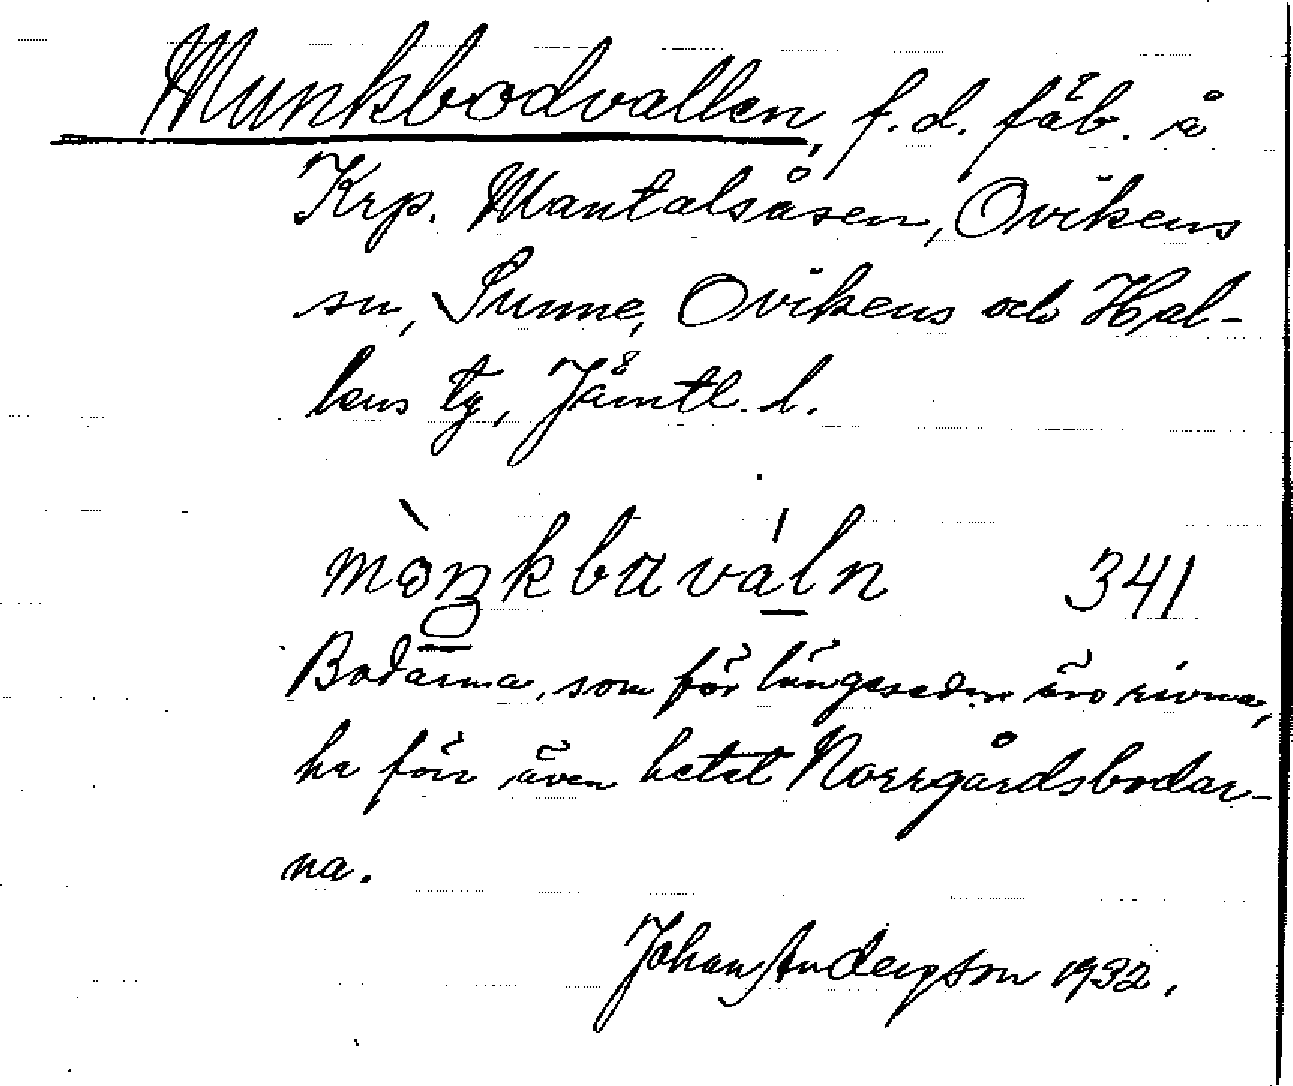 Munkbodvallen, f.d. fäb. å
Krp. Mantalsåsen, Ovikens
sn, Sunne, Ovikens och Hal-
lens tg, Jämtl. l.
341
Bodarna, som för längesedan äro rivna,
ha förr även hetat Norrgårdsbodar-
na.
Johan Anderson 1932.